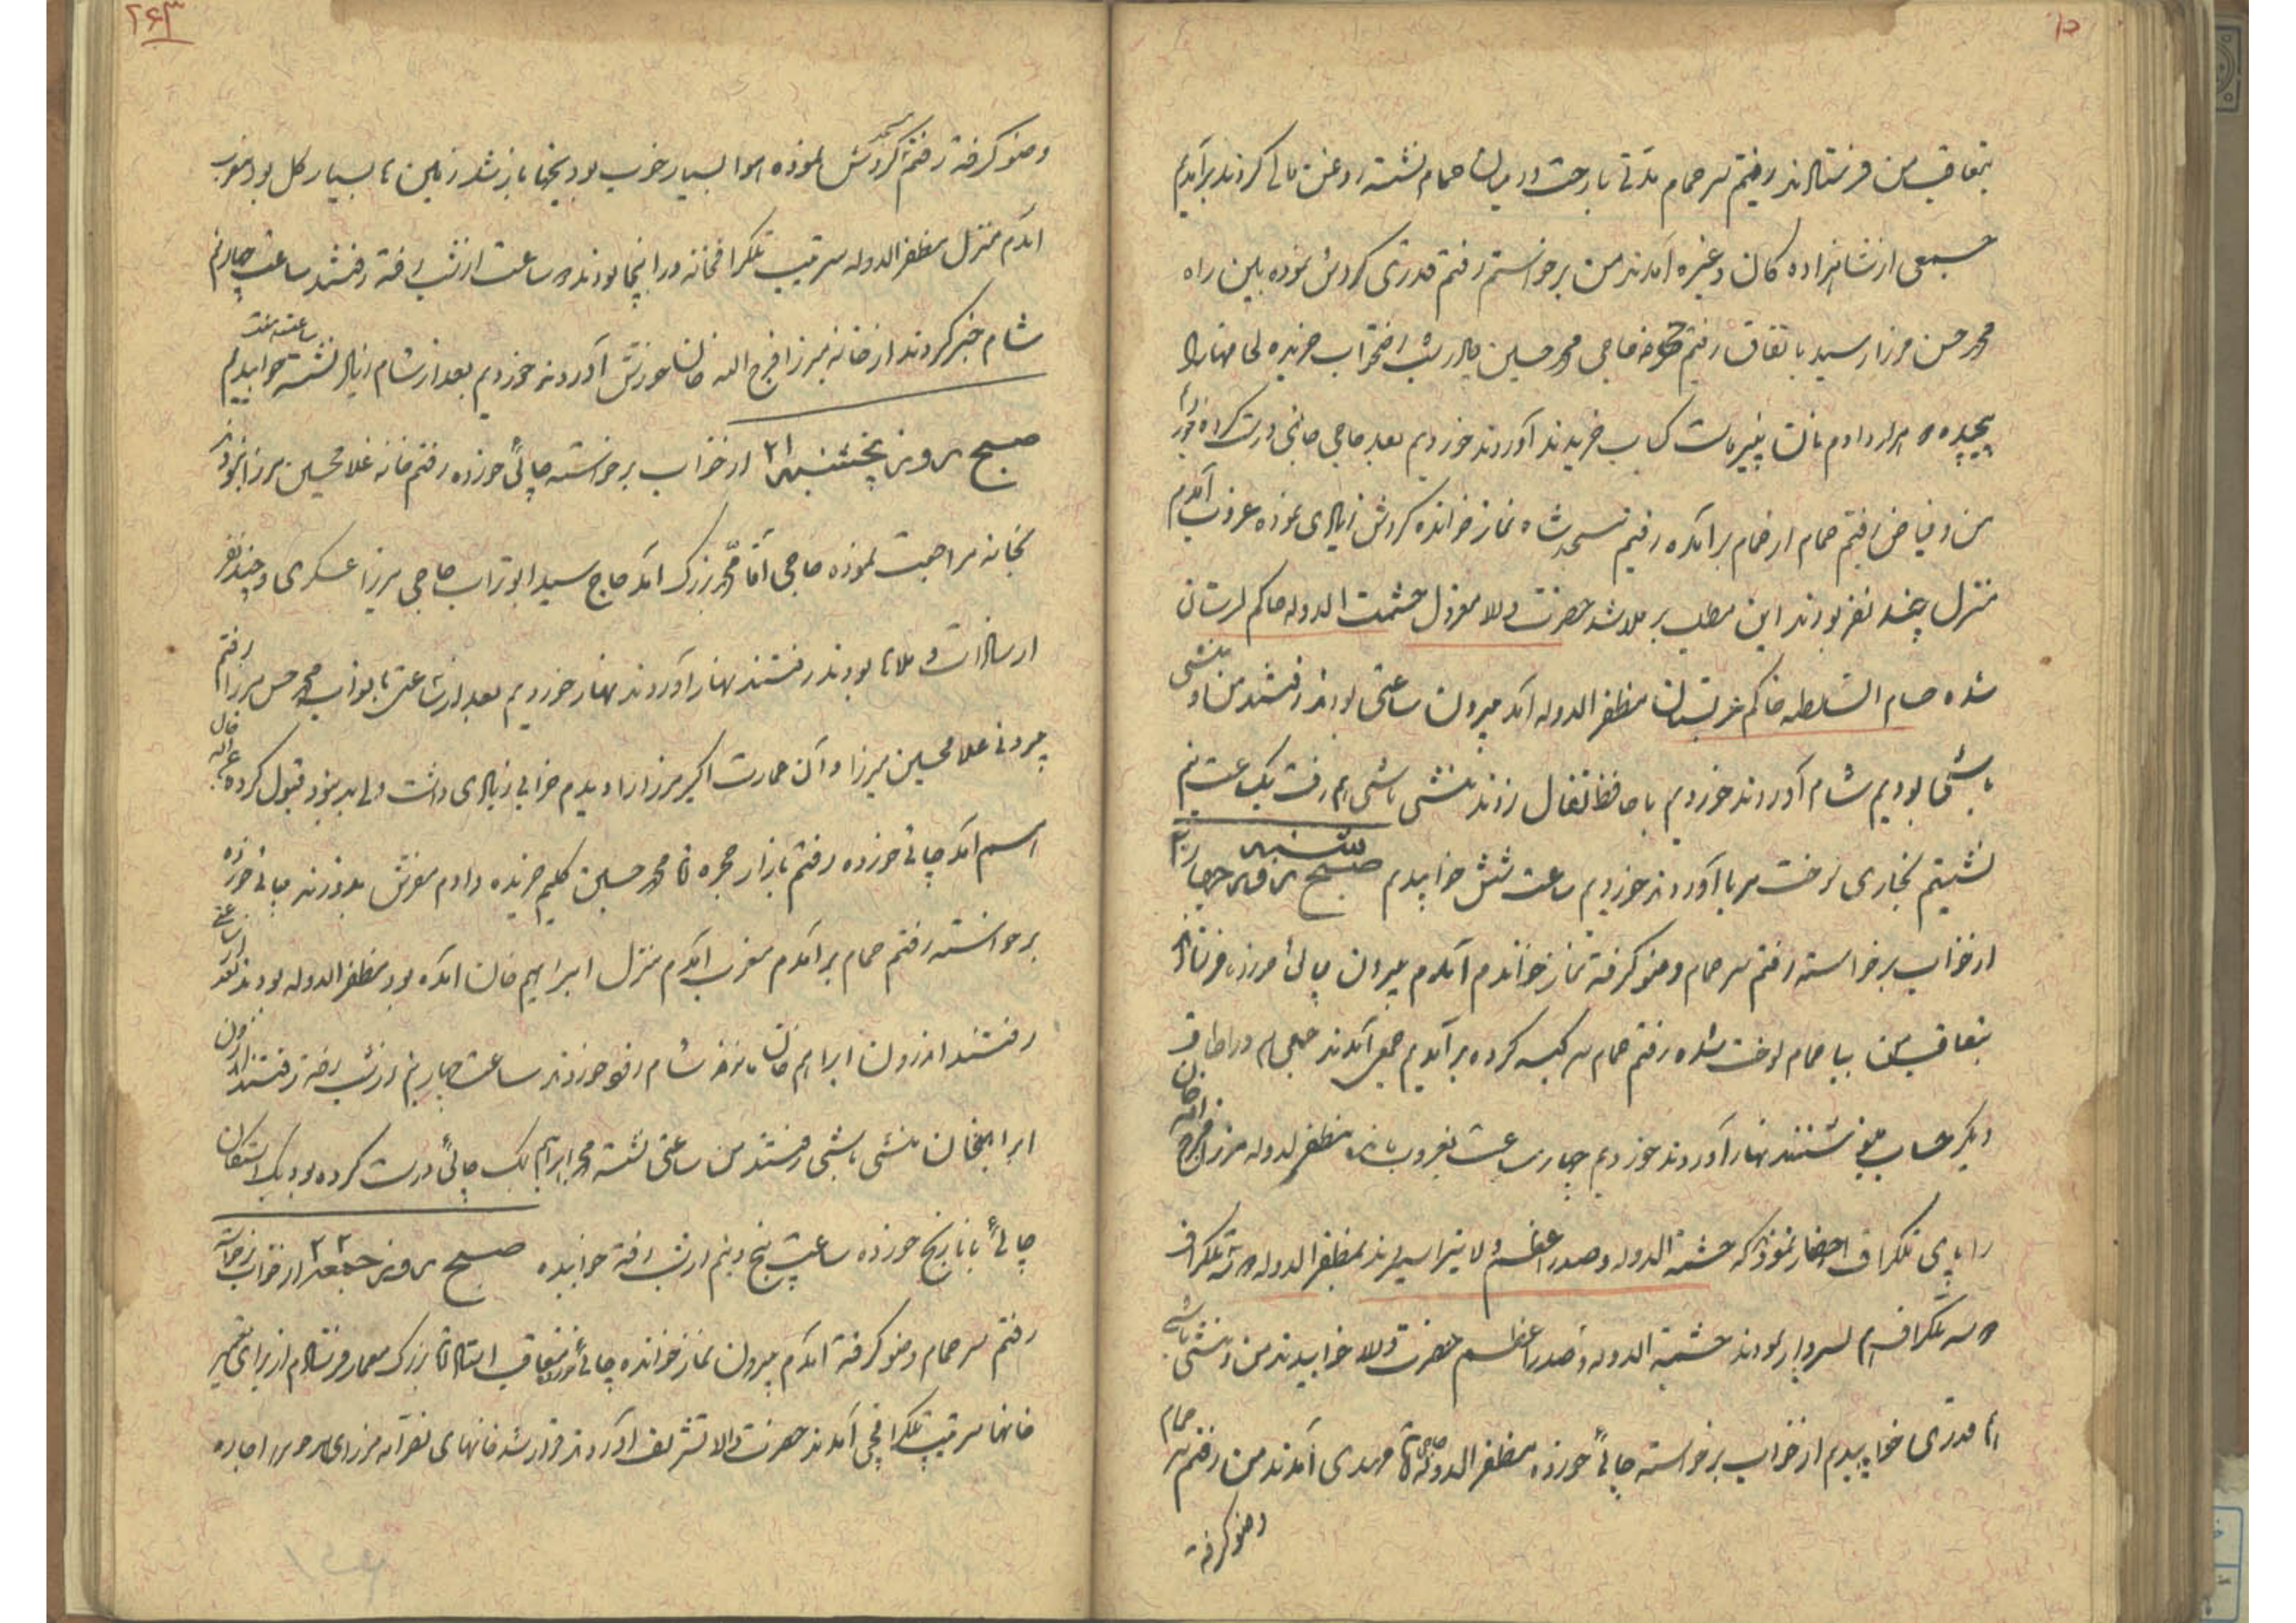 بتعاقب من فرستادند رفتیم سر حمام مدتی با رخت در میان حمام نشسته روغن مالی کردند برآمدیم
جمعی از شاهزاده کان و غیره آمدند من برخواستم رفتم قدری کردش نموده بین راه
محمد حسن میرزا رسید باتفاق رفتم حجره حاجی محمد حسین خریده
پیچیده قرار دادم نان پنیر ماست کباب خریدند آوردند خوردیم بعد حاجی چائی درست کرده خورد
من و فیاض رفتیم حمام از حمام برآمده رفتیم مسجد شاه نماز خوانده کردش زیادی نموده غروب آمدم
منزل چند نفر بودند این مطلب برملا شد حضرت والا معزول حشمت الدوله حاکم لرستان
شده حسام السلطنه حاکم عربستان مظفر الدوله آمد بیرون ساعتی بودند رفتند من و منشی
باشی بودیم شام آوردند خوردیم با حافظ تفال زدند منشی باشی هم رفت یک ساعت نیم
نشستیم بخاری آوردند خوردیم ساعت شش خوابیدم صبح روز چهارشنبه ۲۰
از خواب برخواسته رفتم سر حمام وضو کرفته نماز خواندم آمدم بیرون چائی خورده فرستادند
بتعاقب من بیا حمام لخت شده رفتم حمام کیسه کرده برآمدیم جمعی آمدند در اطاق
دیکر حساب نشستند نهار آوردند خوردیم چهار ساعت بغروب مانده مظفر الدوله میرزا فرج الله خان
را بپای تلکراف احضار نمودند که حشمة الدوله و صدر اعظم والا مظفر الدوله تلکراف
تلکراف بودند حشمة الدوله و صدر اعظم حضرت والا خوابیدند من و منشی باشی
قدری خوابیدم از خواب برخواسته چائی خورده مظفر الدوله حاجی آقا مهدی آمدند من رفتم سر حمام
وضو کرفته
۲۶۳
وضو کرفته رفتم مسجد کردش نموده هوا بسیار خوب بود یخها باز شد زمین ها بسیار کل بود مغرب
آمدم منزل مظفر الدوله سرتیب تلکرافخانه در اینجا بودند ساعت از شب رفته رفتند ساعت چهار نیم
شام خبر کردند از خانه میرزا فرج الله خان خورش آوردند خوردیم بعد از شام زیاد نشسته ساعت هفت خوابیدیم
صبح روز پنجشنبه ۲۱ از خواب برخواسته چائی خورده رفتم خانه غلامحسین میرزا نبودند
بخانه مراجعت نموده حاجی آقا محمد بزرک آمد حاج سید ابو تراب حاجی میرزا عسکری و چند نفر
از سادات و ملاها بودند رفتند نهار آوردند نهار خوردیم بعد از ساعتی با نواب محمد حسن میرزا رفتم
بیرونی غلامحسین میرزا و آن عمارت اکبر میرزا را دیدم خرابی زیادی داشت ولی بد نبود قبول کرده
آمد چائی خورده رفتم بازار حجره آقا محمد حسین کلیم خریده دادم مفرش بدوزند چائی خورده
برخواسته رفتم حمام برآمدم مغرب آمدم منزل ابراهیم خان آمده بود مظفر الدوله بودند بعد از ساعتی
رفتند اندرون ابراهیم خان شام خوردند ساعت چهار نیم از شب رفته رفتند اندرون
ابراهیمخان منشی باشی رفتند من ساعتی نشسته محمد ابراهیم بک چائی درست کرده بود یک استکان
چائی با نارنج خورده ساعت پنج و نیم از شب رفته خوابیده صبح روز جمعه ۲۲ از خواب برخواسته
رفتم سر حمام وضو کرفته آمدم بیرون نماز خوانده چائی خورده بتعاقب استاد آقا بزرک معمار فرستادم از برای تعمیر
خانها سرتیب تلکرافچی آمدند حضرت والا تشریف آوردند قرار شد خانهای اجاره